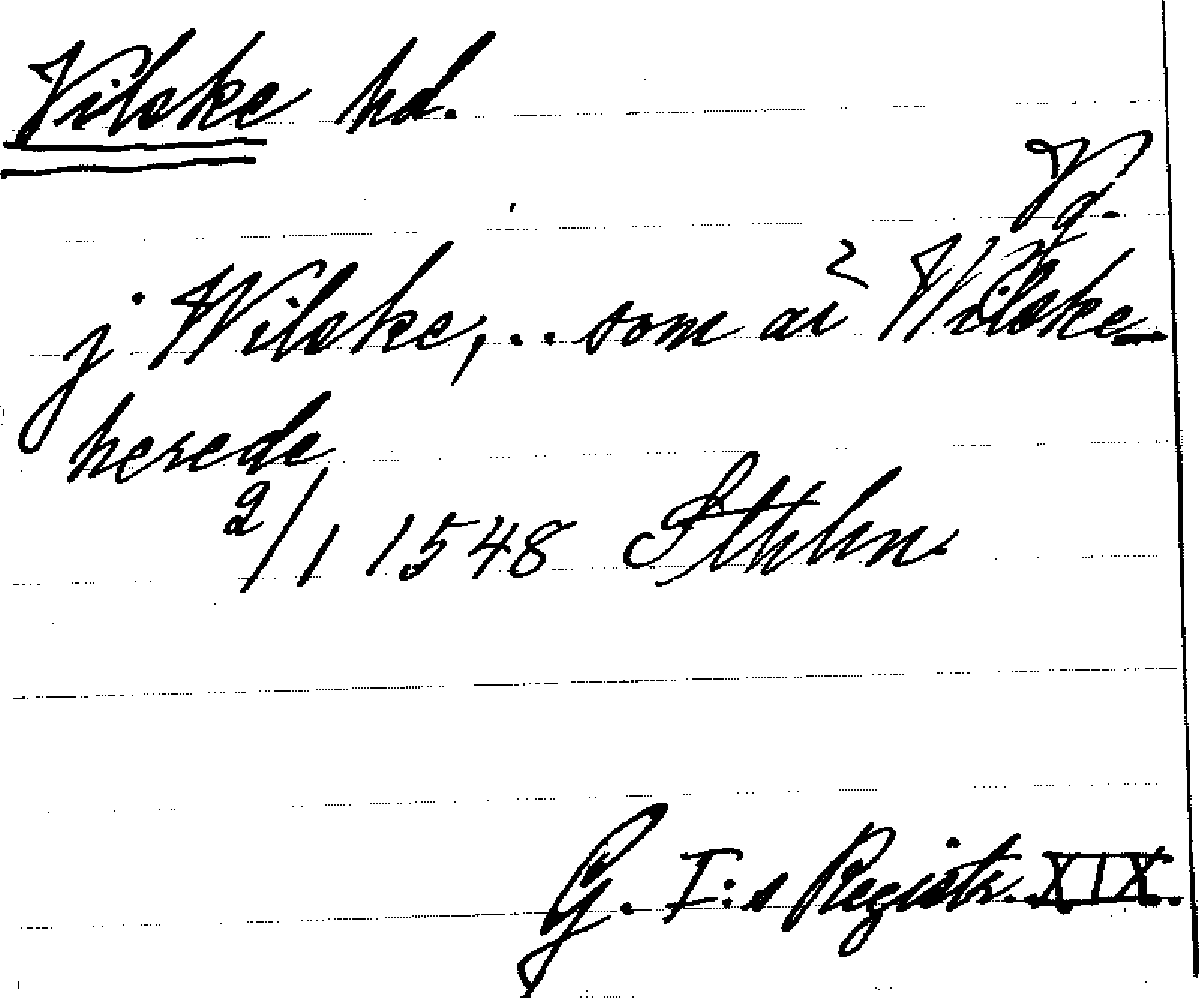 Vilske hd.
Vg.
j Wilske, .. som är Wilske-
herede
2/1 1548 Sthlm.
G. I:s Registr. XIX.